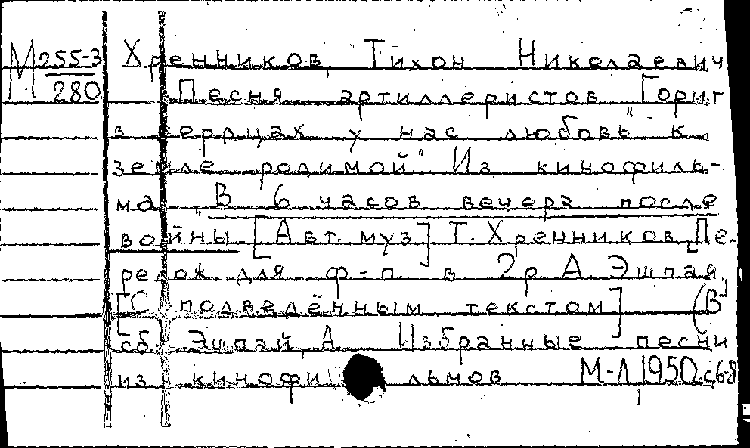 М 255-3 Хренников, Тихон Николаевич
280 Песня артиллеристов "Горит
в сердцах у нас любовь к
земле родимой". Из кинофиль-
ма "В 6 часов вечера после
войны" [Авт. муз.] Т. Хренников, [Пе-
релож. для ф-п. в 2р. А. Эшпая,
[С подведённым текстом] (В
сб. Эшпай, А. Избранные песни
из кинофильмов М-Л 1950. с.6-8